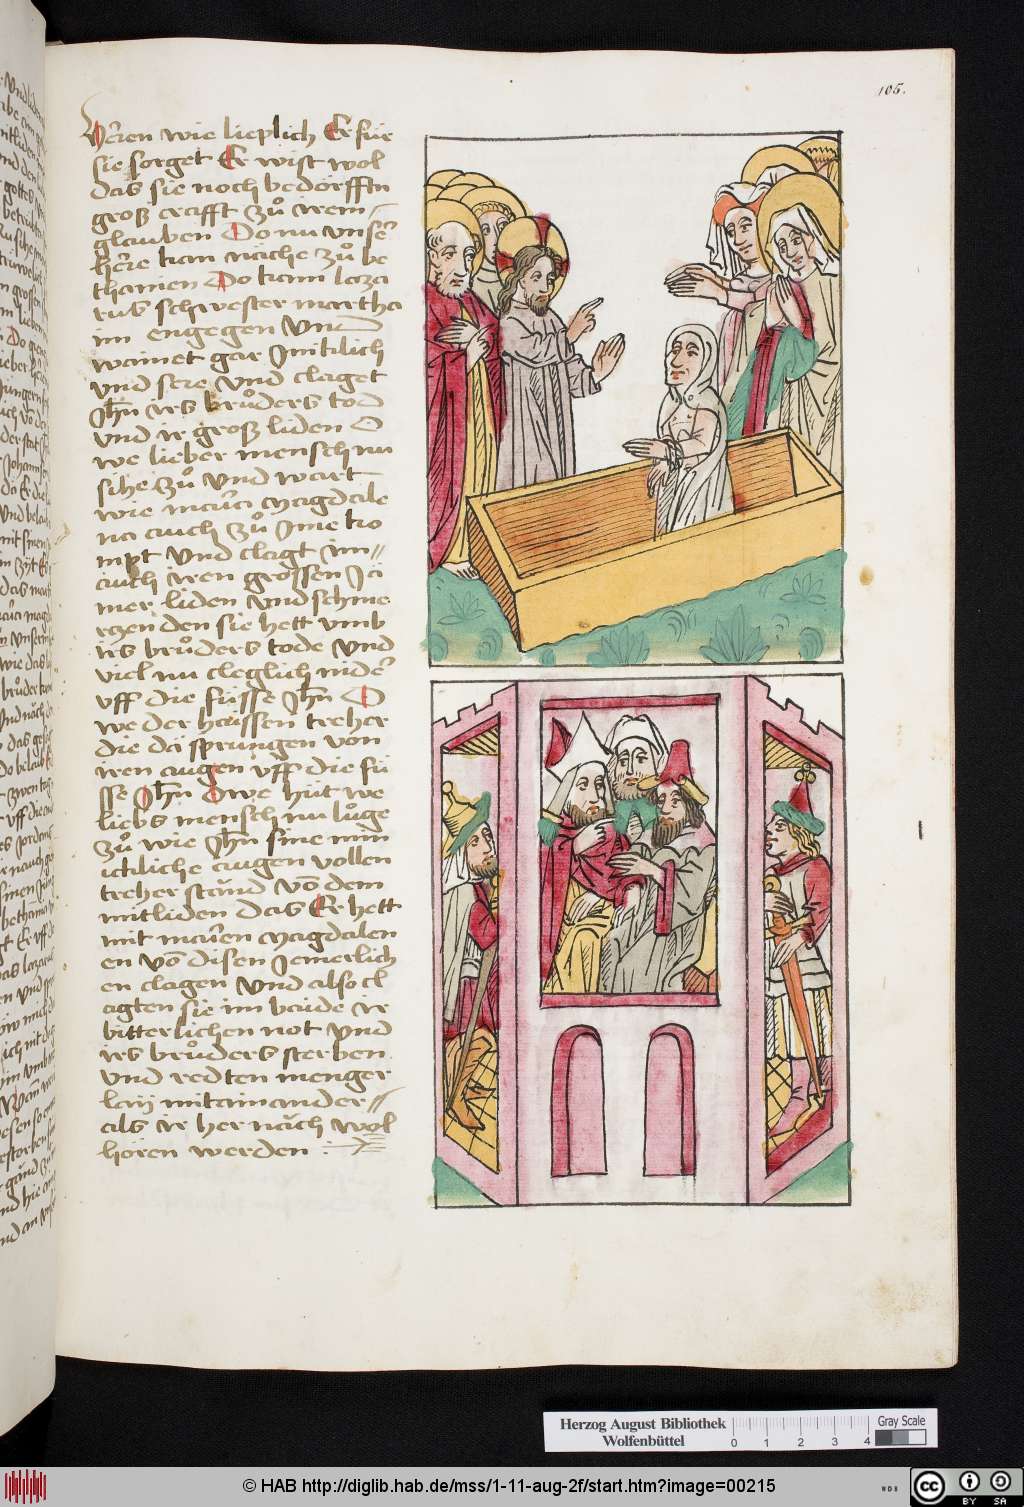 105.
heren wie lieplich Er für
sie sorget Er wist wol
das sie noch bedörfftn
groß crafft zů irem
glauben Do nu unser
here kam nache zů be
thanien Do kam laza
rus schwester martha
im engegen Und
wainet gar Jnniklich
und sere Und claget
Jhn irs brůders tod
und ir groß liden O
we lieber mensch nu
sihe zů und wart
wie maria magdale
na auch zů Jme ko
mpt Und clagt im
auch iren grossen Ja
mer liden Und schme
rczen den sie hett umb
irs brůders tode Und
viel nu cleglich nider
uff die füsse Jhu O
we der haissen treher
die da sprungen von
iren augen uff die fü
sse Jhu Owe hüt we
liebs mensch nu lůge
zů wie Jhu sine min
icliche augen vollen
treher stand vō dem
mitliden das Er hett
mit marien magdalen
en vō disen Jemerlich
en clagen Und also cl
agten sie im baide ir
bitterlichen not Und
irs brůders sterben
Und redten menger
laij mitainander
als ir her nach wol
hören werden :
Herzog August Bibliothek
Wolfenbüttel
0 1 2 3 4
Gray Scale
© HAB http://diglib.hab.de/mss/1-11-aug-2f/start.htm?image=00215
WDB
cc BY SA